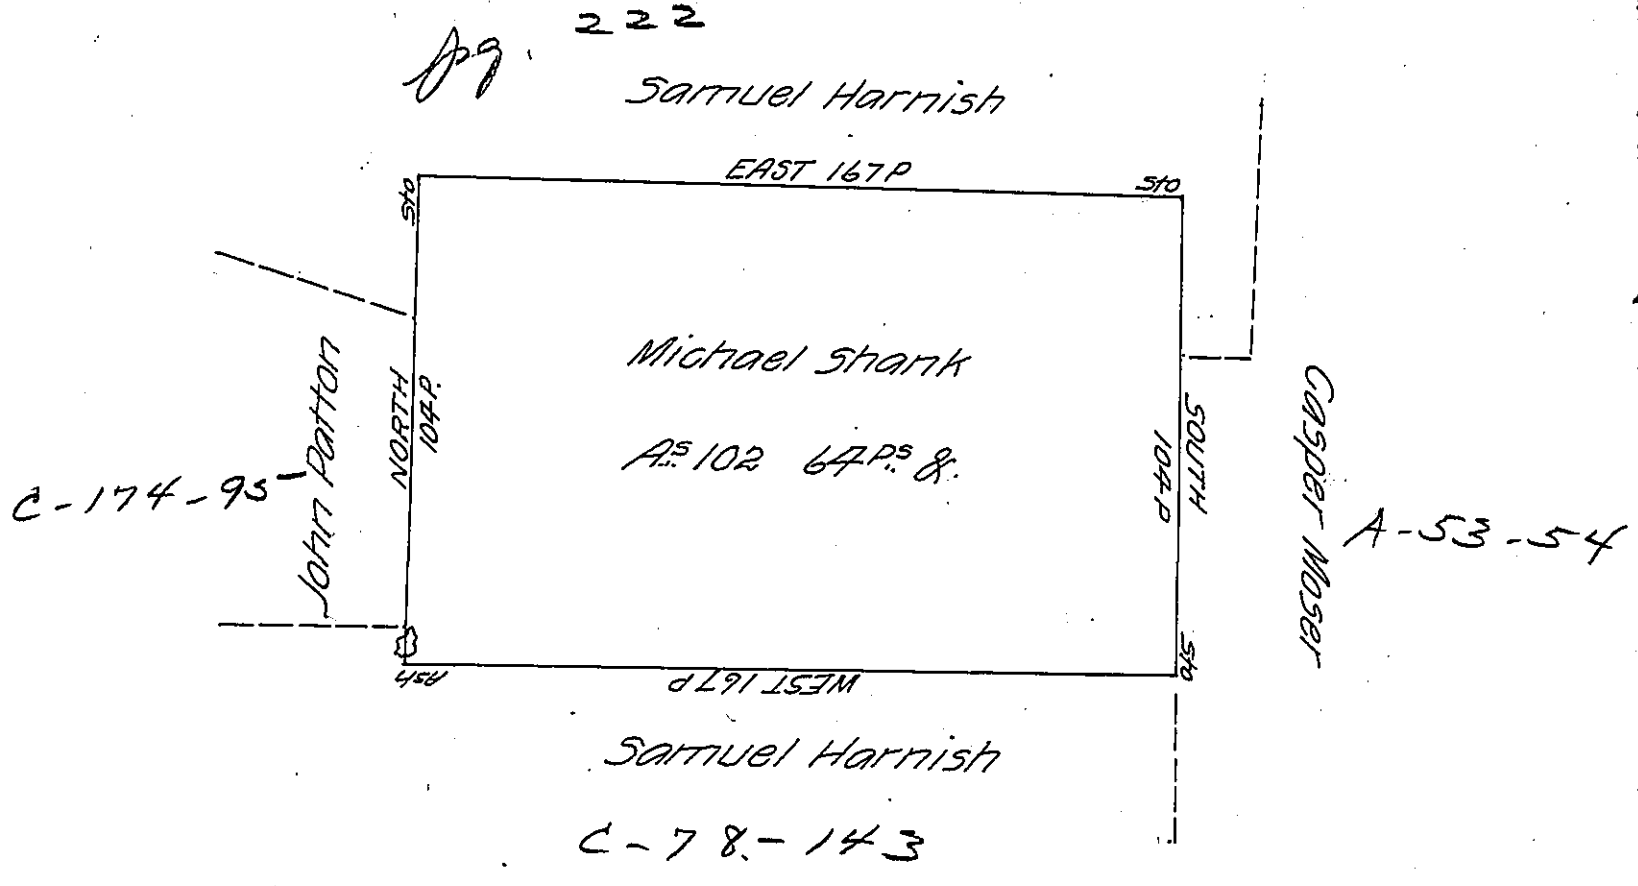 pg. 222
Samuel Harnish
EAST 167P
Sto
Sto
NORTH
104P.
John Patton
C-174-95
Michael Shank
As 102 64Ps &.
SOUTH
104P
Casper Moser
A-53-54
Ash
WEST 167P
Sto
Samuel Harnish
C-78-143